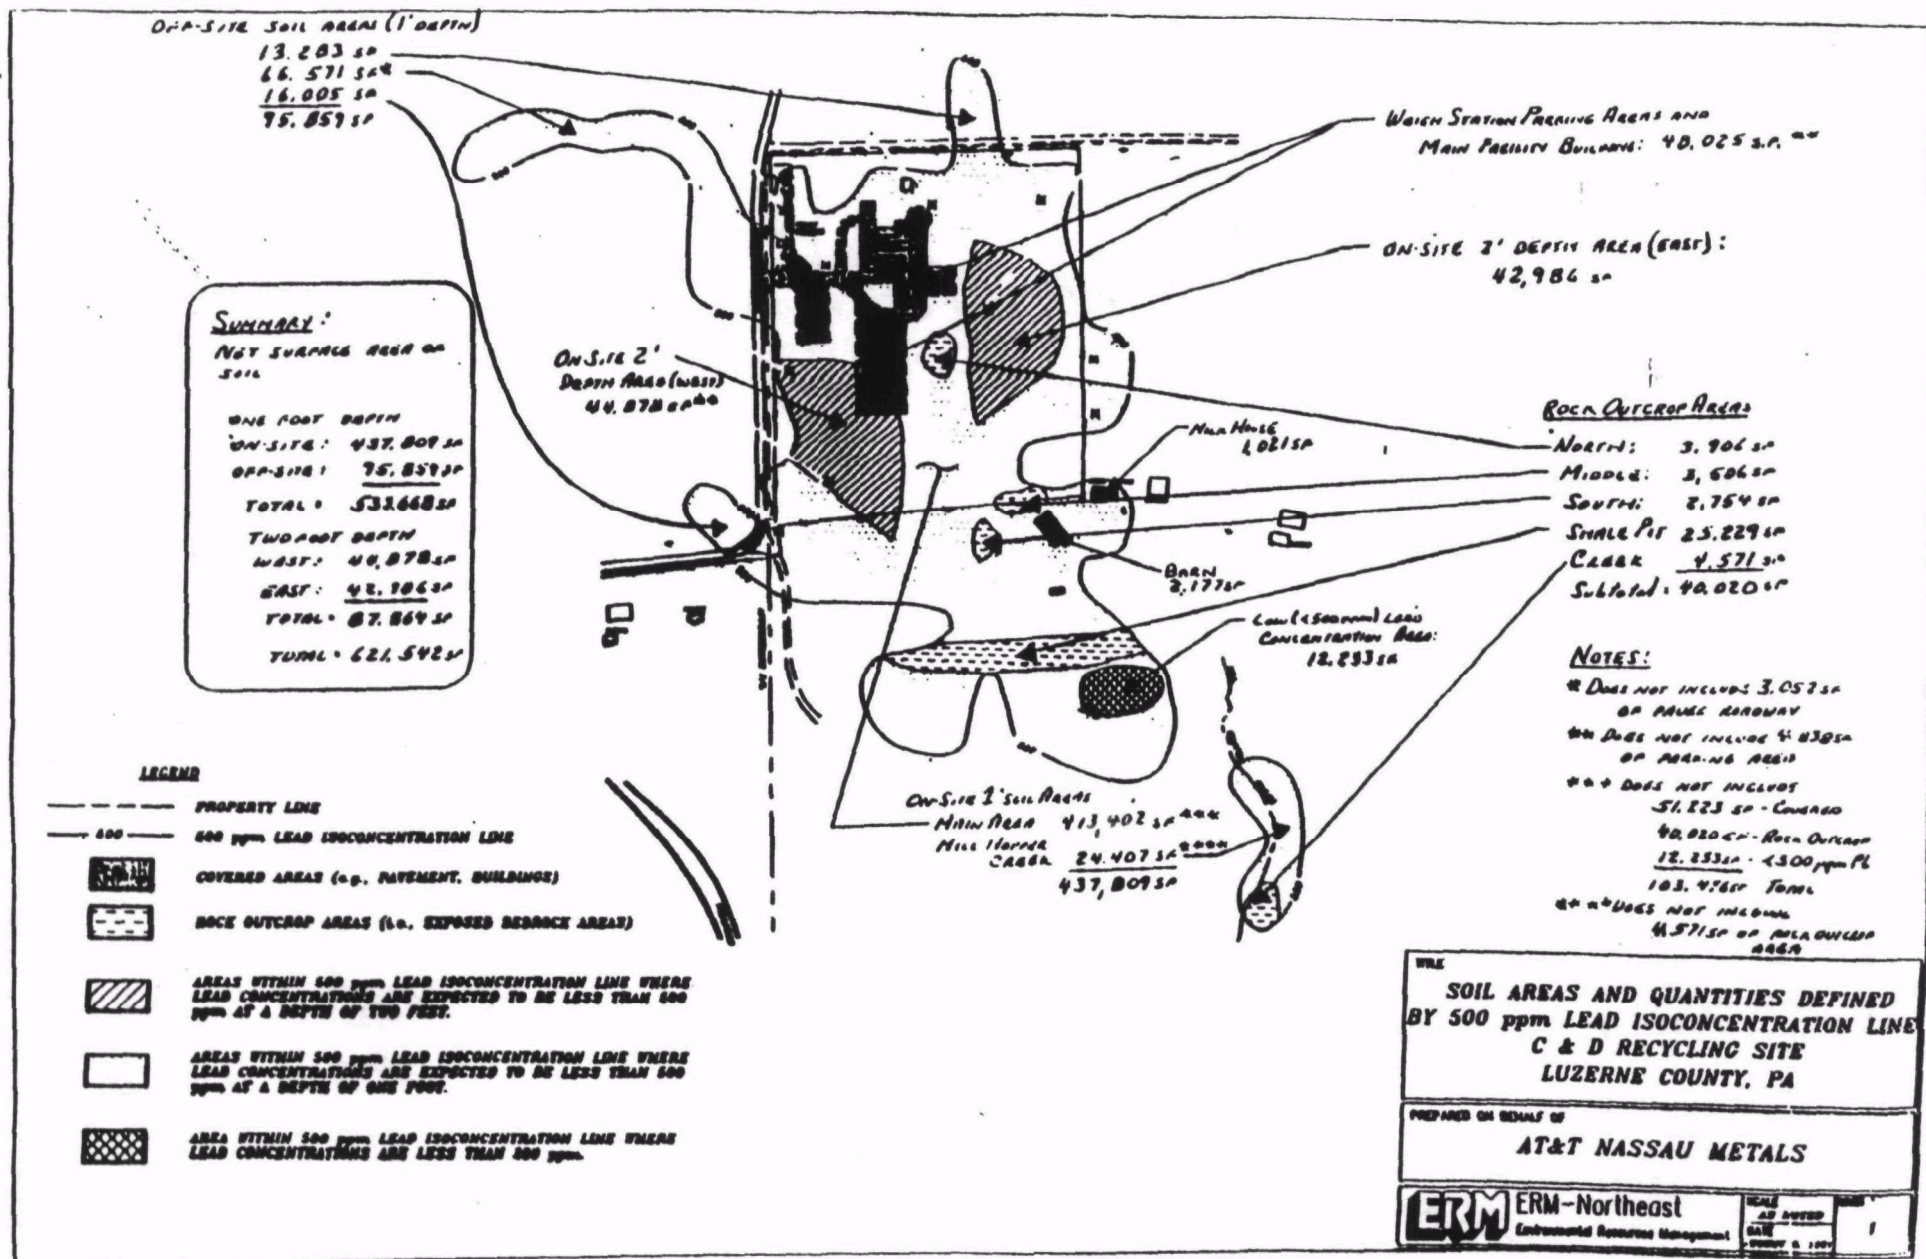 OFF-SITE SOIL AREAS (1' DEPTH)
13.283 SF
66.571 SF*
16.005 SF
95.859 SF
WEIGH STATION PARKING AREAS AND
MAIN FACILITY BUILDING: 48,025 S.F. **
ON-SITE 2' DEPTH AREA (EAST):
42,986 SF
SUMMARY:
NET SURFACE AREA OF
SOIL
ONE FOOT DEPTH
ON-SITE: 437.809 SF
OFF-SITE: 95.859 SF
TOTAL = 533.668 SF
TWO FOOT DEPTH
WEST: 44,878 SF
EAST: 42.986 SF
TOTAL = 87.864 SF
TOTAL = 621.542 SF
ON-SITE 2'
DEPTH AREA (WEST)
44.878 SF **
MILK HOUSE
1,021 SF
BARN
2,177 SF
ROCK OUTCROP AREAS
NORTH: 3.906 SF
MIDDLE: 3,606 SF
SOUTH: 2,754 SF
SMALL PIT 25.229 SF
CREEK 4.571 SF
Subtotal: 40.020 SF
LOW (<500 ppm) LEAD
CONCENTRATION AREA:
12.233 SF
NOTES:
* DOES NOT INCLUDE 3.052 SF
OF PAVED ROADWAY
** DOES NOT INCLUDE SF
OF PARKING AREAS
*** DOES NOT INCLUDE
51.223 SF - COVERED
40.020 SF - ROCK OUTCROP
12.233 SF - <500 ppm Pb
103.476 SF TOTAL
**** DOES NOT INCLUDE
4.571 SF OF ROCK OUTCROP
AREA
ON-SITE 1' SOIL AREAS
MAIN AREA 413,402 SF ***
MILL HOPPER
CREEK 24.407 SF ****
437,809 SF
LEGEND
PROPERTY LINE
500 500 ppm LEAD ISOCONCENTRATION LINE
COVERED AREAS (e.g., PAVEMENT, BUILDINGS)
ROCK OUTCROP AREAS (i.e., EXPOSED BEDROCK AREAS)
AREAS WITHIN 500 ppm LEAD ISOCONCENTRATION LINE WHERE
LEAD CONCENTRATIONS ARE EXPECTED TO BE LESS THAN 500
ppm AT A DEPTH OF TWO FEET.
AREAS WITHIN 500 ppm LEAD ISOCONCENTRATION LINE WHERE
LEAD CONCENTRATIONS ARE EXPECTED TO BE LESS THAN 500
ppm AT A DEPTH OF ONE FOOT.
AREA WITHIN 500 ppm LEAD ISOCONCENTRATION LINE WHERE
LEAD CONCENTRATIONS ARE LESS THAN 500 ppm.
TITLE
SOIL AREAS AND QUANTITIES DEFINED
BY 500 ppm LEAD ISOCONCENTRATION LINE
C & D RECYCLING SITE
LUZERNE COUNTY, PA
PREPARED ON BEHALF OF
AT&T NASSAU METALS
ERM ERM-Northeast
Environmental Resources Management
SCALE
AS NOTED
DATE
1